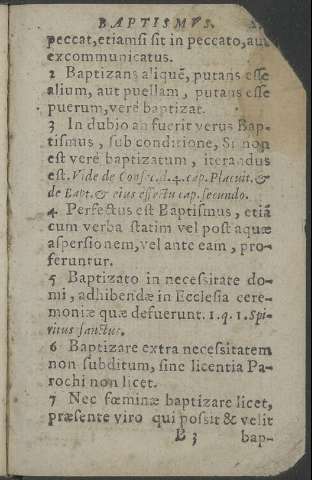 BAPTISMVS.
peccat, etiamsi sit in peccato, aut
excommunicatus.
2 Baptizans aliquē, putans esse
alium, aut puellam, putans esse
puerum, verè baptizat.
3 In dubio an fuerit verus Bap-
tismus, sub conditione, Si non
est verè baptizatum, iterandus
est. Vide de Consec. d. 4. cap. Placuit. &
de Bapt. & eius effectu cap. secundo.
4 Perfectus est Baptismus, etiā
cum verba statim vel post aquæ
aspersionem, vel ante eam, pro-
feruntur.
5 Baptizato in necessitate do-
mi, adhibendæ in Ecclesia cere-
moniæ quæ defuerunt. 1. q. 1. Spi-
ritus sanctus.
6 Baptizare extra necessitatem
non subditum, sine licentia Pa-
rochi non licet.
7 Nec fœminæ baptizare licet,
præsente viro qui possit & velit
B 3 bap-